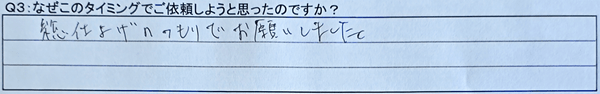 Q3:なぜこのタイミングでご依頼しようと思ったのですか？
総仕上げのつもりでお願いしました。